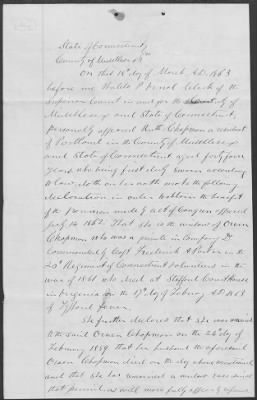 State of Connecticut
County of Middlesex
On this 18th day of March A.D. 1863
before me Waldo P. Vinal Clerk of the
Superior Court in and for the County of
Middlesex and State of Connecticut,
Personally appeared Ruth Chapman a resident
of Portland in the County of Middlesex
and State of Connecticut aged forty four
years who being first duly sworn according
to law, doth on her oath make the following
declaration in order to obtain the benefit
of the provision made by act of Congress approved
July 14 1862. That she is the widow of Orren
Chapman who was a private in Company D
commanded by Capt Frederick A. Parker in the
20th Regiment of Connecticut Volunteers in the
war of 1861 who died at Stafford Court House
in Virginia on the 17th day of February A.D. 1863
of Typhoid fever.
She further declares that she was married
to the said Orren Chapman on the 26th day of
February 1839, that her husband the aforesaid
Orren Chapman died on the day above mentioned
and that she has remained a widow ever since
that period, as will more fully appear by reference